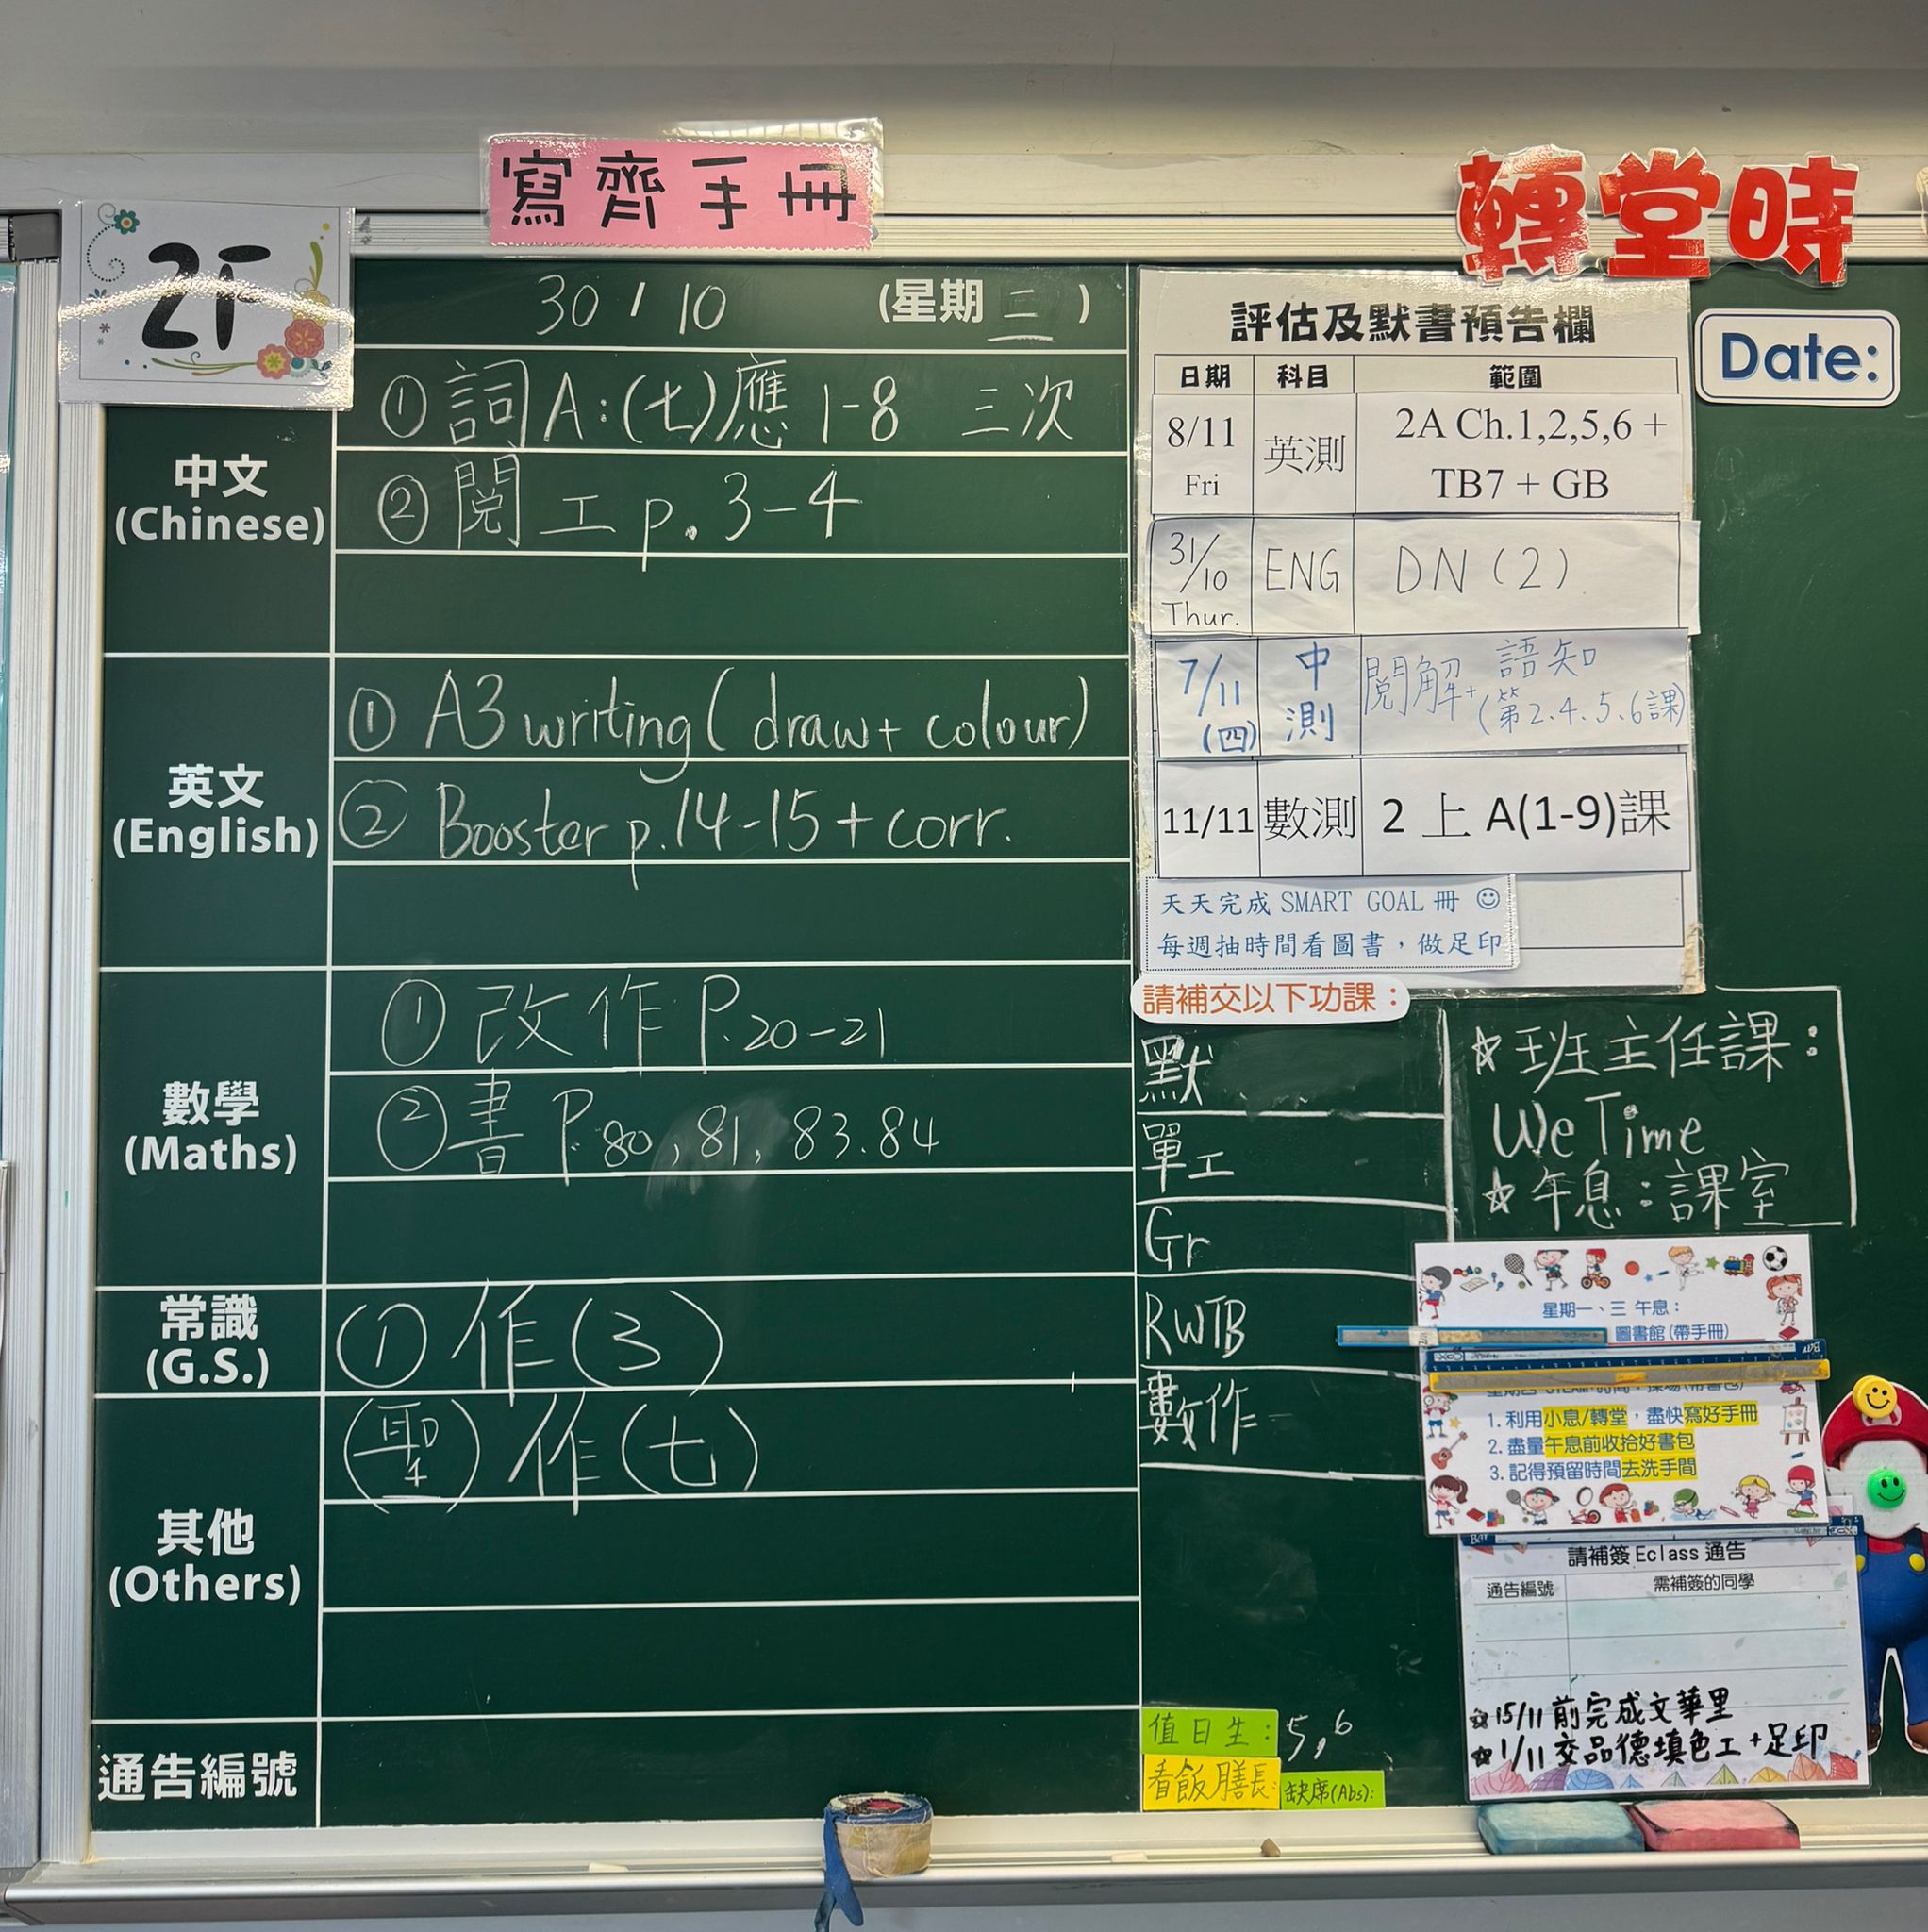 寫齊手冊
轉堂時
2F
30 / 10 (星期三)
中文
(Chinese)
① 詞A:(七)應 1-8 三次
② 閱工 p. 3-4
英文
(English)
① A3 writing ( draw + colour)
② Booster p.14-15 + corr.
數學
(Maths)
① 改作 P.20-21
② 書 P.80, 81, 83.84
常識
(G.S.)
① 作(3)
其他
(Others)
(聖) 作(七)
通告編號
評估及默書預告欄
日期 科目 範圍
8/11 Fri 英測 2A Ch.1,2,5,6 +
TB7 + GB
31/10 Thur. ENG DN (2)
7/11 (四) 中測 閱解+ 語知
(第2.4.5.6課)
11/11 數測 2 上 A(1-9)課
天天完成 SMART GOAL 冊 ☺
每週抽時間看圖書，做足印
Date:
請補交以下功課：
默
單工
Gr
RWTB
數作
☆班主任課：
We Time
☆午息：課室
星期一、三 午息：
圖書館(帶手冊)
1. 利用小息/轉堂，盡快寫好手冊
2. 盡量午息前收拾好書包
3. 記得預留時間去洗手間
請補簽 Eclass 通告
通告編號 需補簽的同學
☆15/11 前完成文華里
☆1/11 交品德填色工+足印
值日生：5,6
看飯膳長:
缺席(Abs):